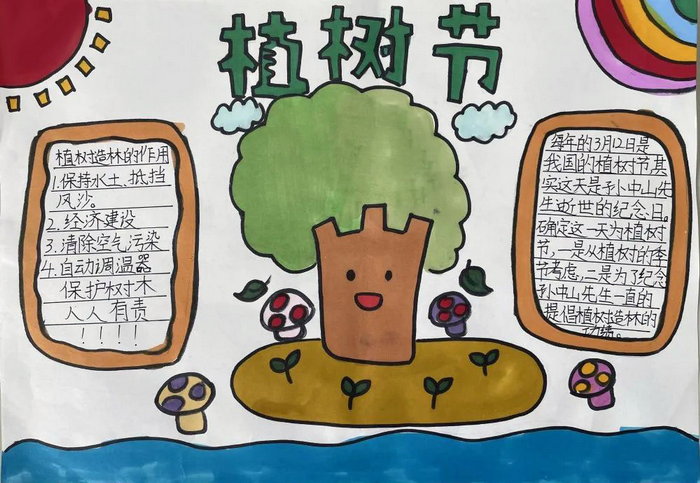 植树节
植树造林的作用
1.保持水土、抵挡
风沙。
2.经济建设
3.清除空气污染
4.自动调温器
保护树木
人人有责
！！！！
每年的3月12日是
我国的植树节,其
实这天是孙中山先
生逝世的纪念日。
确定这一天为植树
节,一是从植树的季
节考虑,二是为了纪念
孙中山先生一直的
提倡植树造林的
功绩。